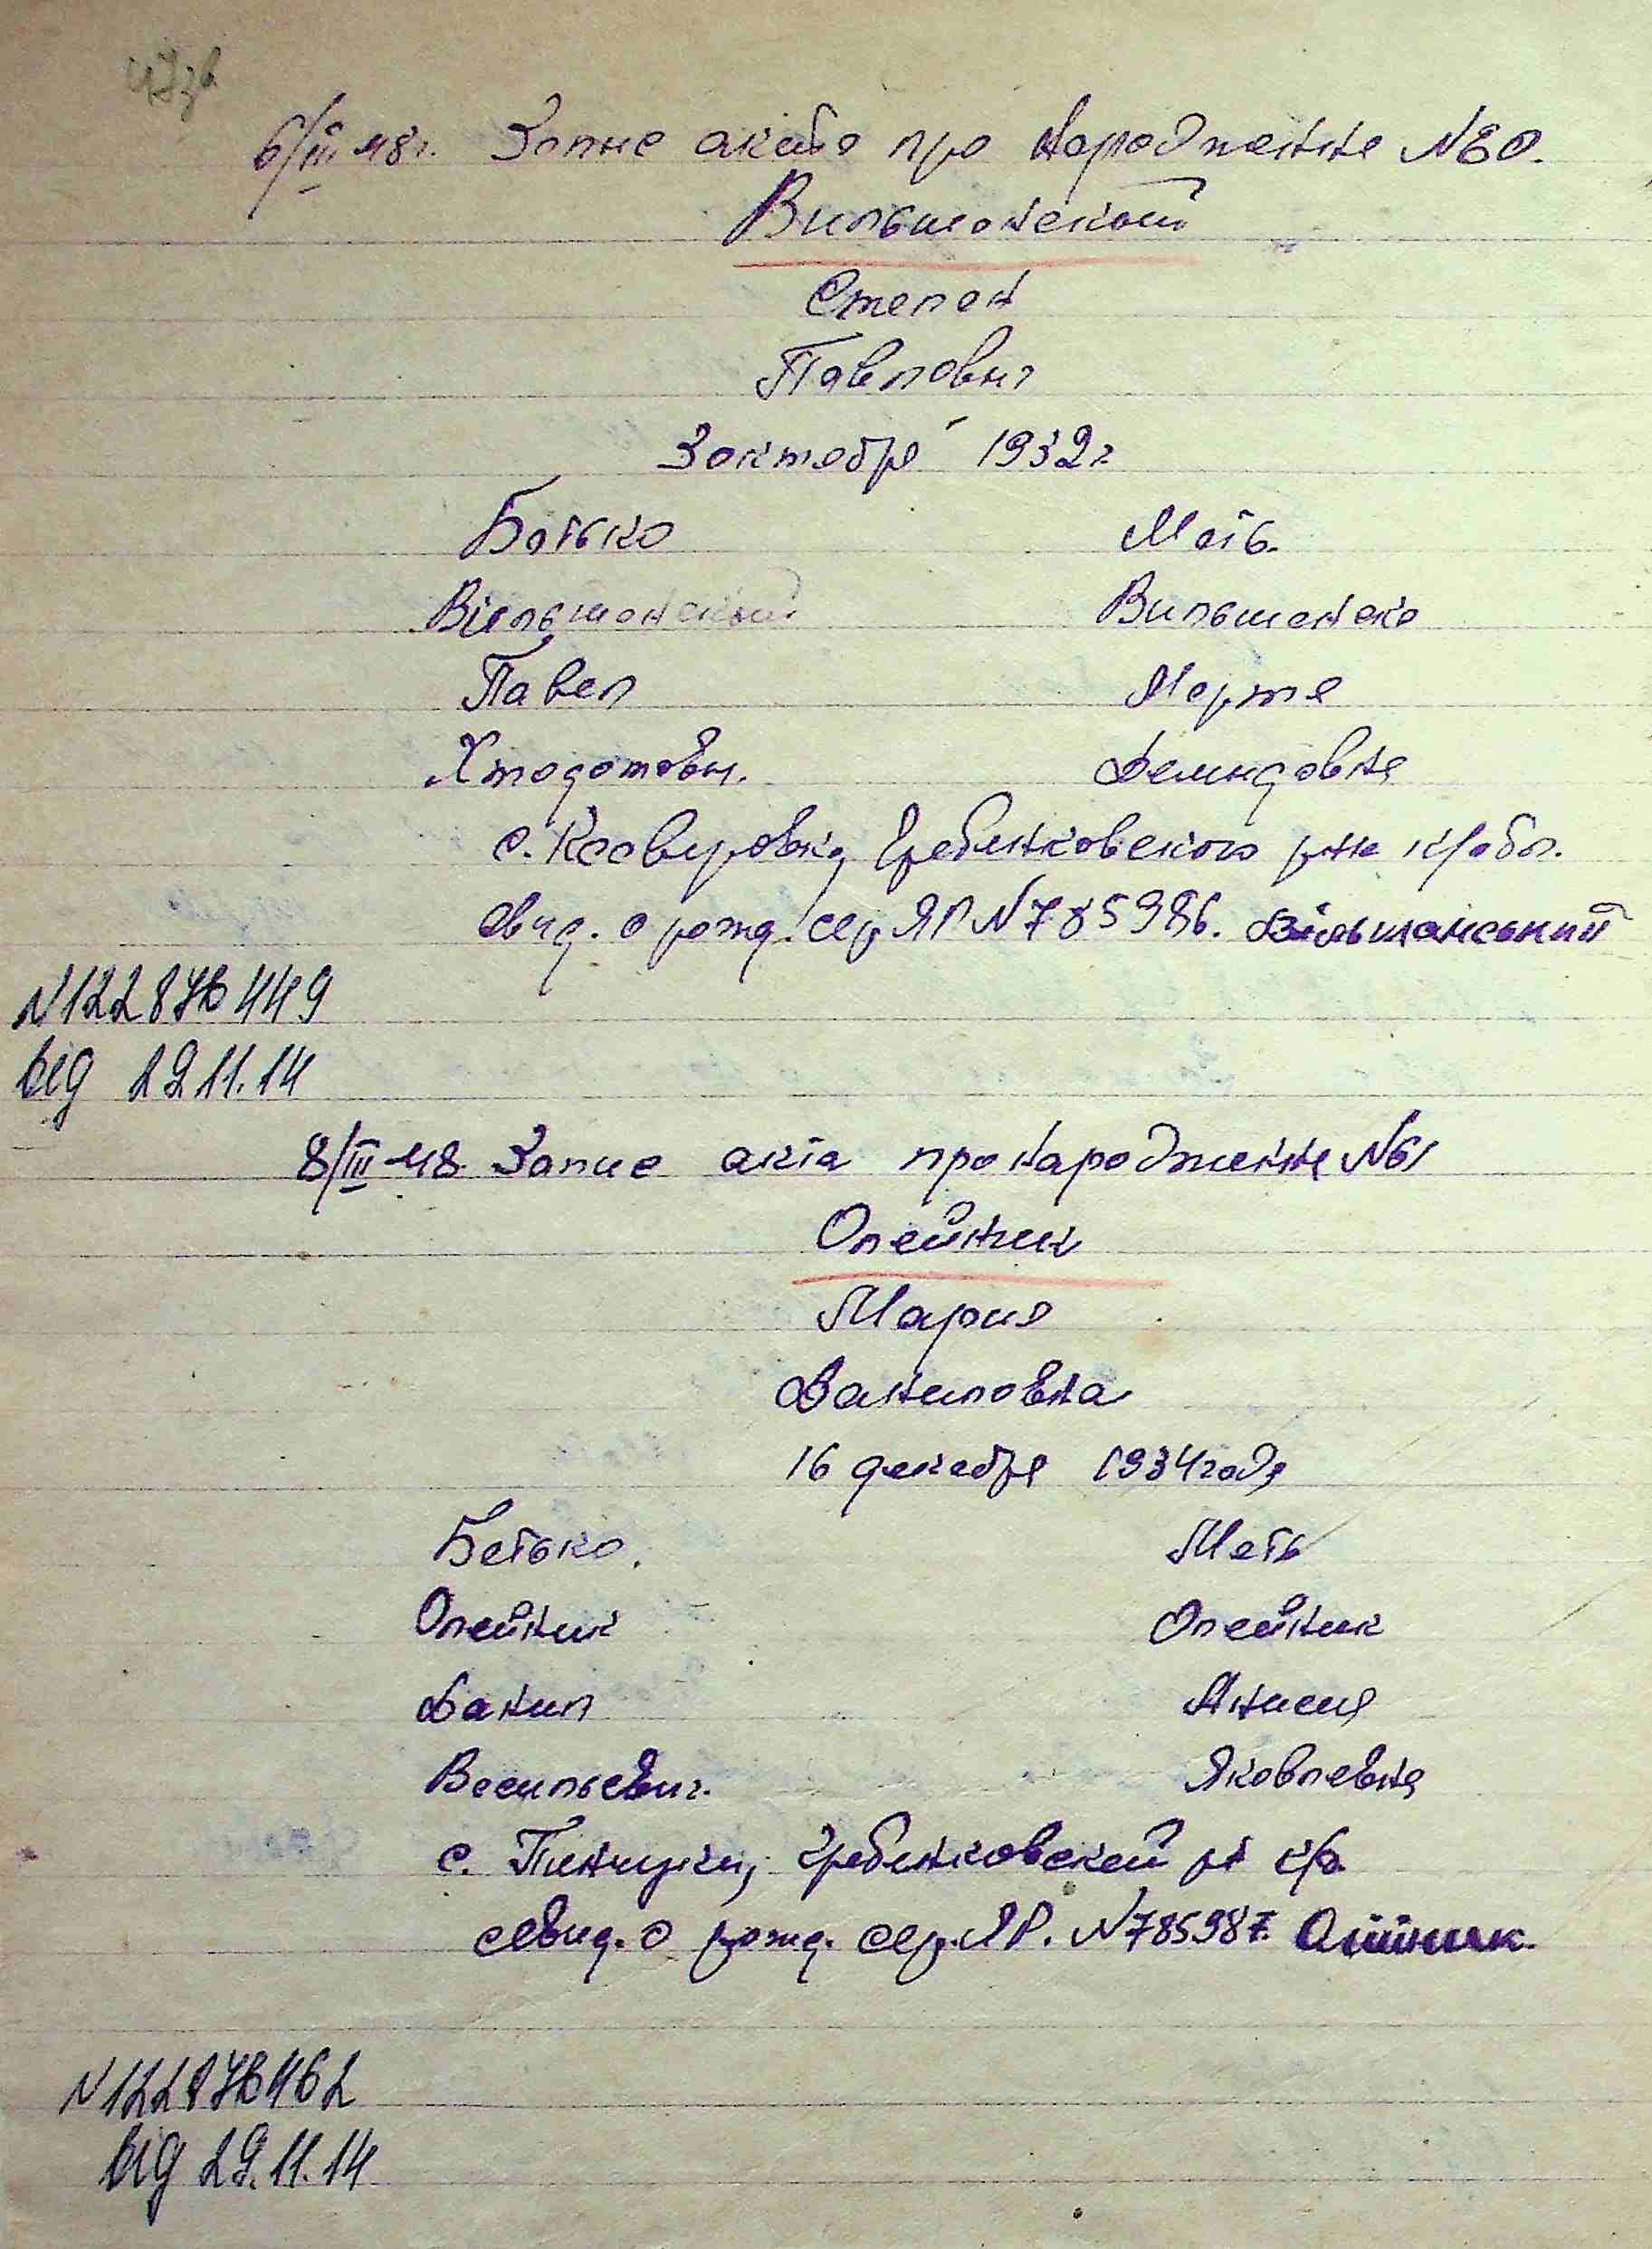 6/III 48г. Запис акта про народження №60.
Вильшанский
Степан
Павлович
3 октября 1932г
Батько Мать.
Вільшанский Вильшанска
Павел Марта
Демидовна
с. Ксаверовка, Гребенковского р-на к/обл.
свид. о рожд. сер ЯР №785986. Вільшанський
№12287/6449
від 29.11.14
8/III 48. Запис акта про народження №61
Олейник
Мария
Даниловна
16 декабря 1934 года
Батько. Мать
Олейник Олейник
Данил Анисия
Васильевич. Яковлевна
с. Пинчуки, Гребенковский р-н к/о.
свид. о рожд. сер. ЯР. №785987.
від 29.11.14